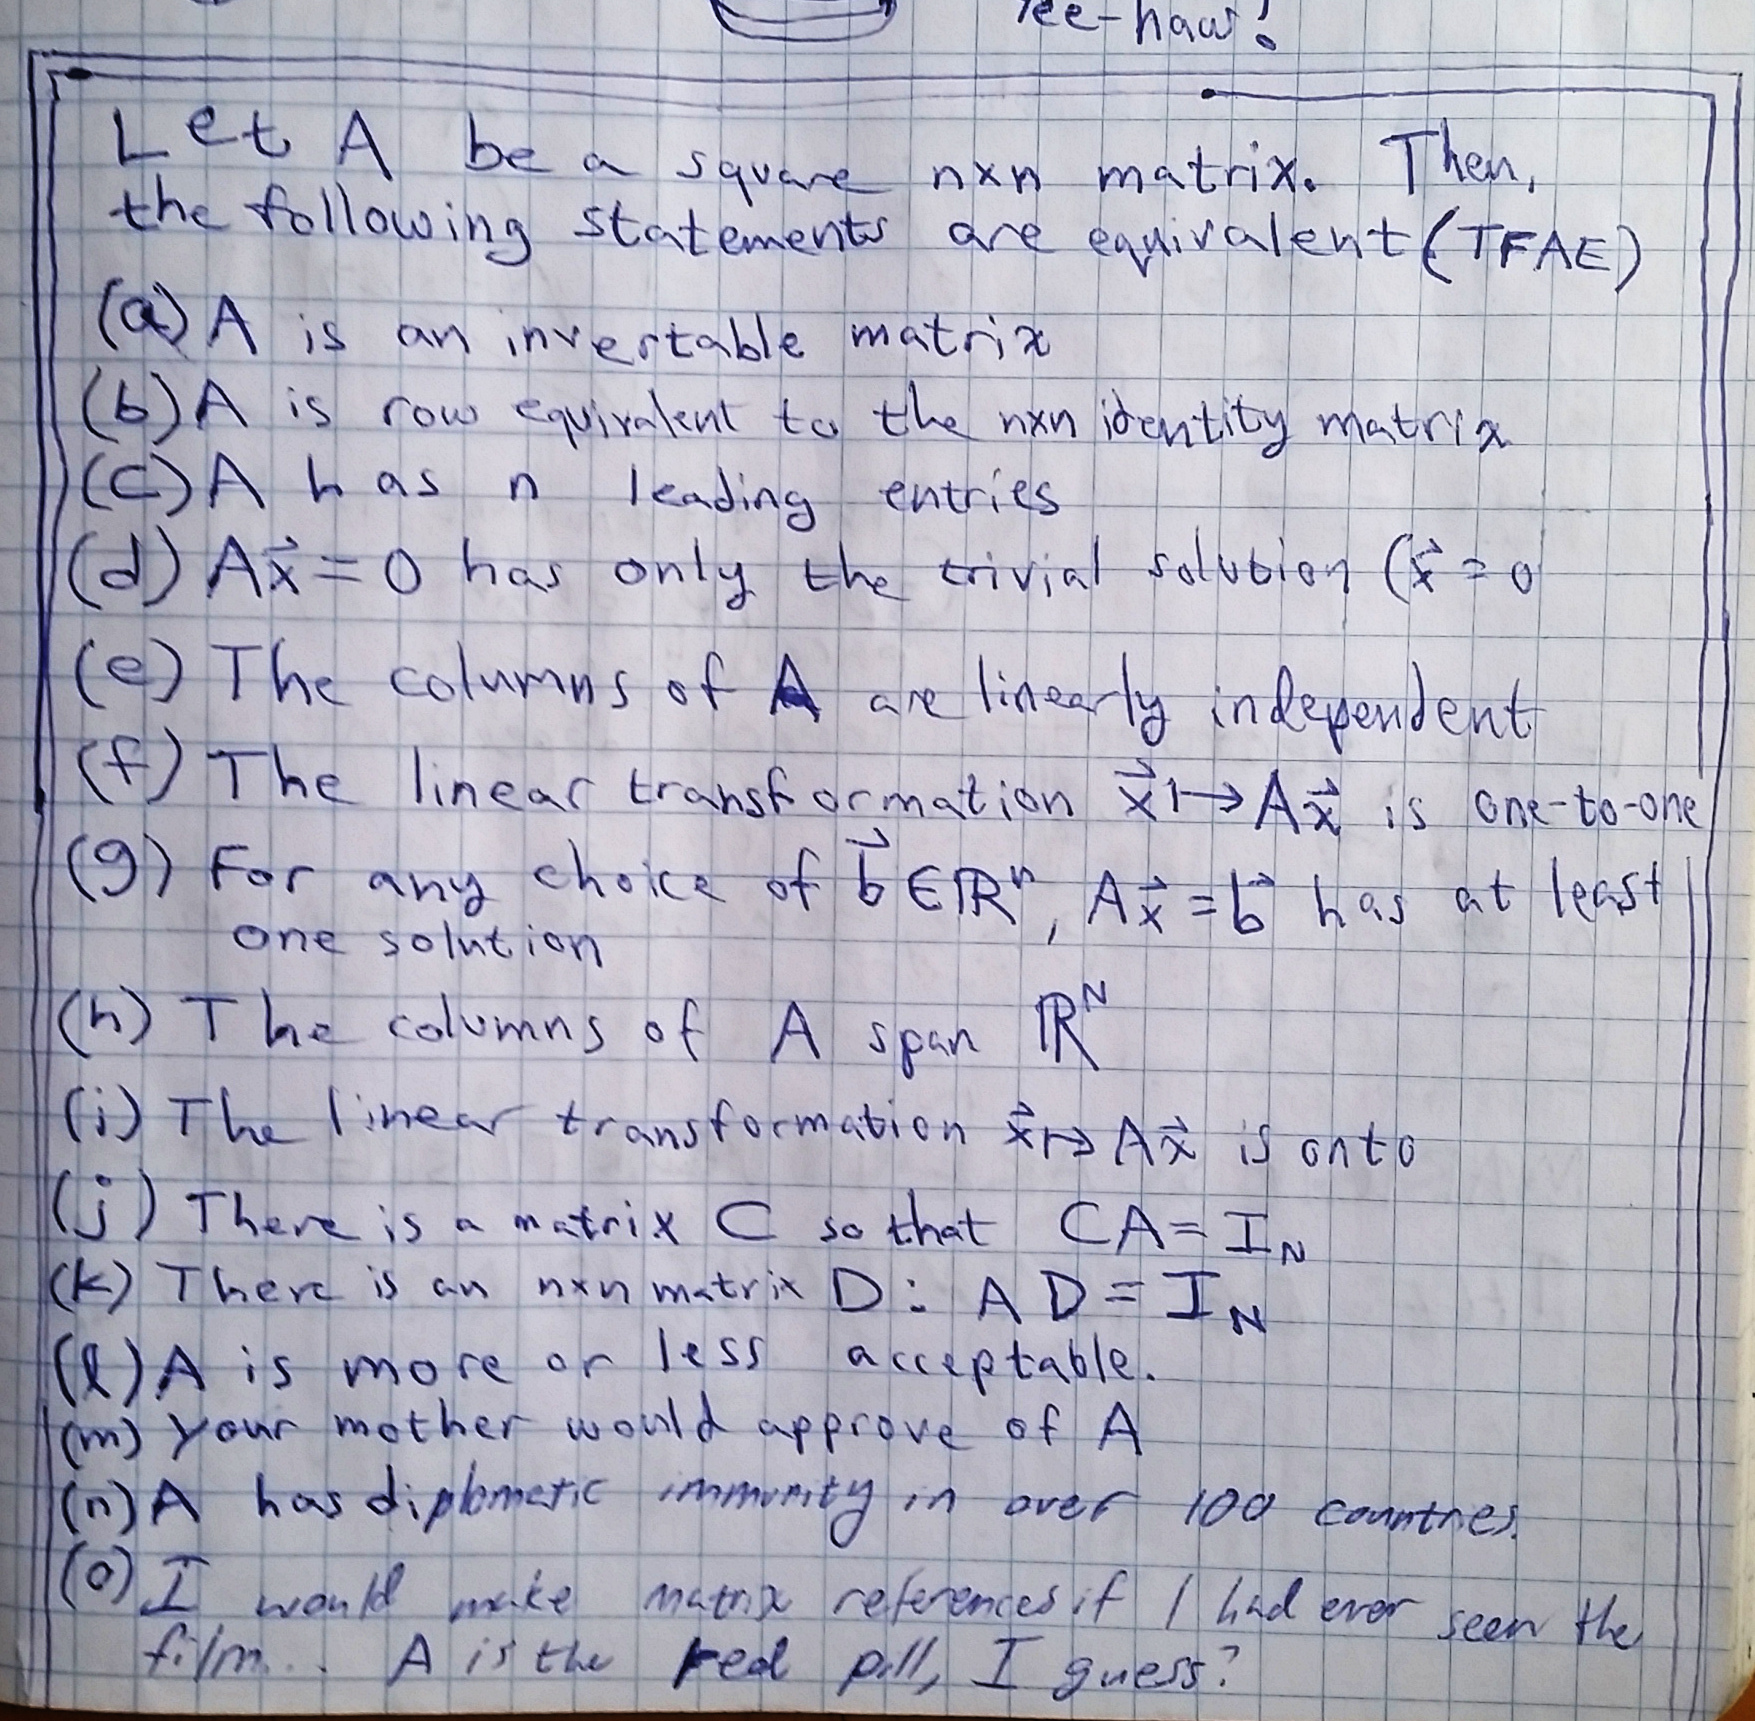 Yee-haw!
Let A be a square nxn matrix. Then,
the following statements are equivalent (TFAE)
(a) A is an invertable matrix
(b) A is row equivalent to the nxn identity matrix
(c) A has n leading entries
(d) Ax⃗ = 0 has only the trivial solution (x⃗ = 0
(e) The columns of A are linearly independent
(f) The linear transformation x⃗ ↦ Ax⃗ is one-to-one
(g) For any choice of b⃗ ∈ ℝⁿ, Ax⃗ = b⃗ has at least
one solution
(h) The columns of A span ℝᴺ
(i) The linear transformation x⃗ ↦ Ax⃗ is onto
(j) There is a matrix C so that CA = I_N
(k) There is an nxn matrix D: AD = I_N
(l) A is more or less acceptable.
(m) your mother would approve of A
(n) A has diplomatic immunity in over 100 countries.
(o) I would make matrix references if I had ever seen the
film... A is the red pill, I guess?